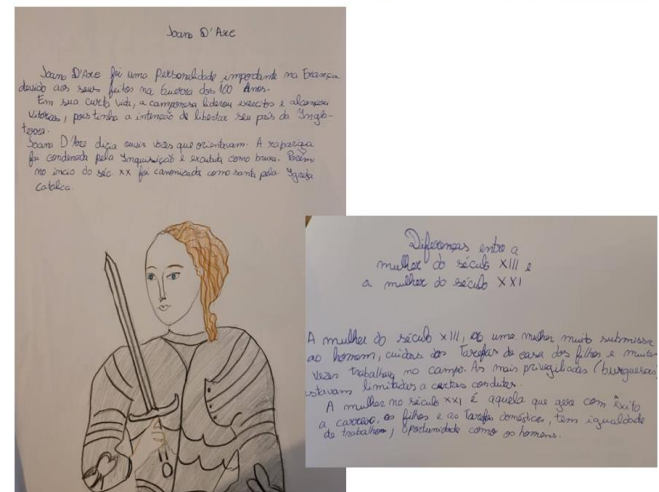 Joana D'Arc
Joana D'Arc foi uma personalidade importante na França
devido aos seus feitos na Guerra dos 100 Anos.
Em sua curta vida, a camponesa liderou exercitos e alcançou
vitórias, pois tinha a intenção de libertar seu país da Ingla-
terra.
Joana D'Arc dizia ouvir vozes que orientavam. A rapariga
foi condenada pela Inquisição e executada como bruxa. Porém
no inicio do séc. XX foi canonizada como santa pela Igreja
Catolica.
Diferenças entre a
mulher do século XIII e
a mulher do século XXI
A mulher do século XIII, uma mulher muito submissa
ao homem, cuidava das Tarefas de casa dos filhos e muitas
vezes trabalhava no campo. As mais priveguiladas (burguesas
estavam limitadas a certas condutas.
A mulher no século XXI é aquela que gere com êxito
a carreira, os filhos e as tarefas domésticas, tem igualdade
de trabalhos, oportunidade como os homens.